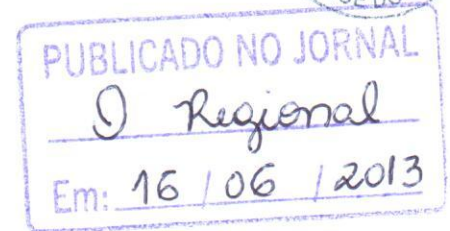 PUBLICADO NO JORNAL
O Regional
Em: 16 / 06 / 2013